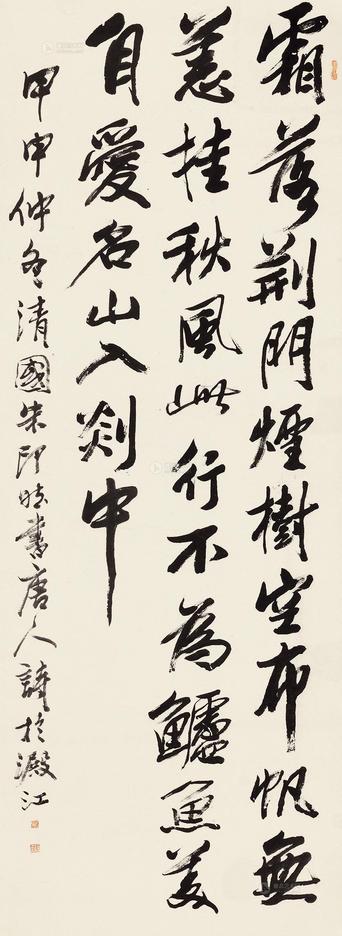 霜落荆門煙樹空布帆無
恙挂秋風此行不為鱸魚美
自愛名山入剡中
甲申仲冬清國朱印書唐人詩於澱江